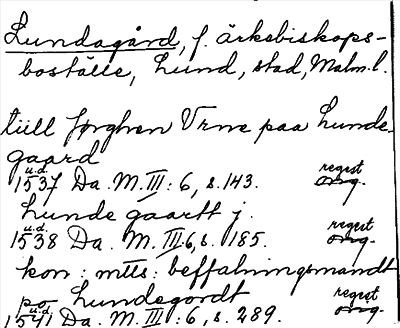 Lundagård, f. ärkebiskops-
boställe, Lund, stad, Malm. l.
tiill Jørghen Vrne paa Lunde-
gaard
u.d. regest
1537 Da. M. III: 6, s. 143. orig.
Lunde gaartt j.
u.d. regest
1538 Da. M. III 6, s. 185. orig.
kon: mtts: beffalningsmandt
po Lundegordt
u.d. regest
1541 Da. M. III: 6, s. 289. orig.